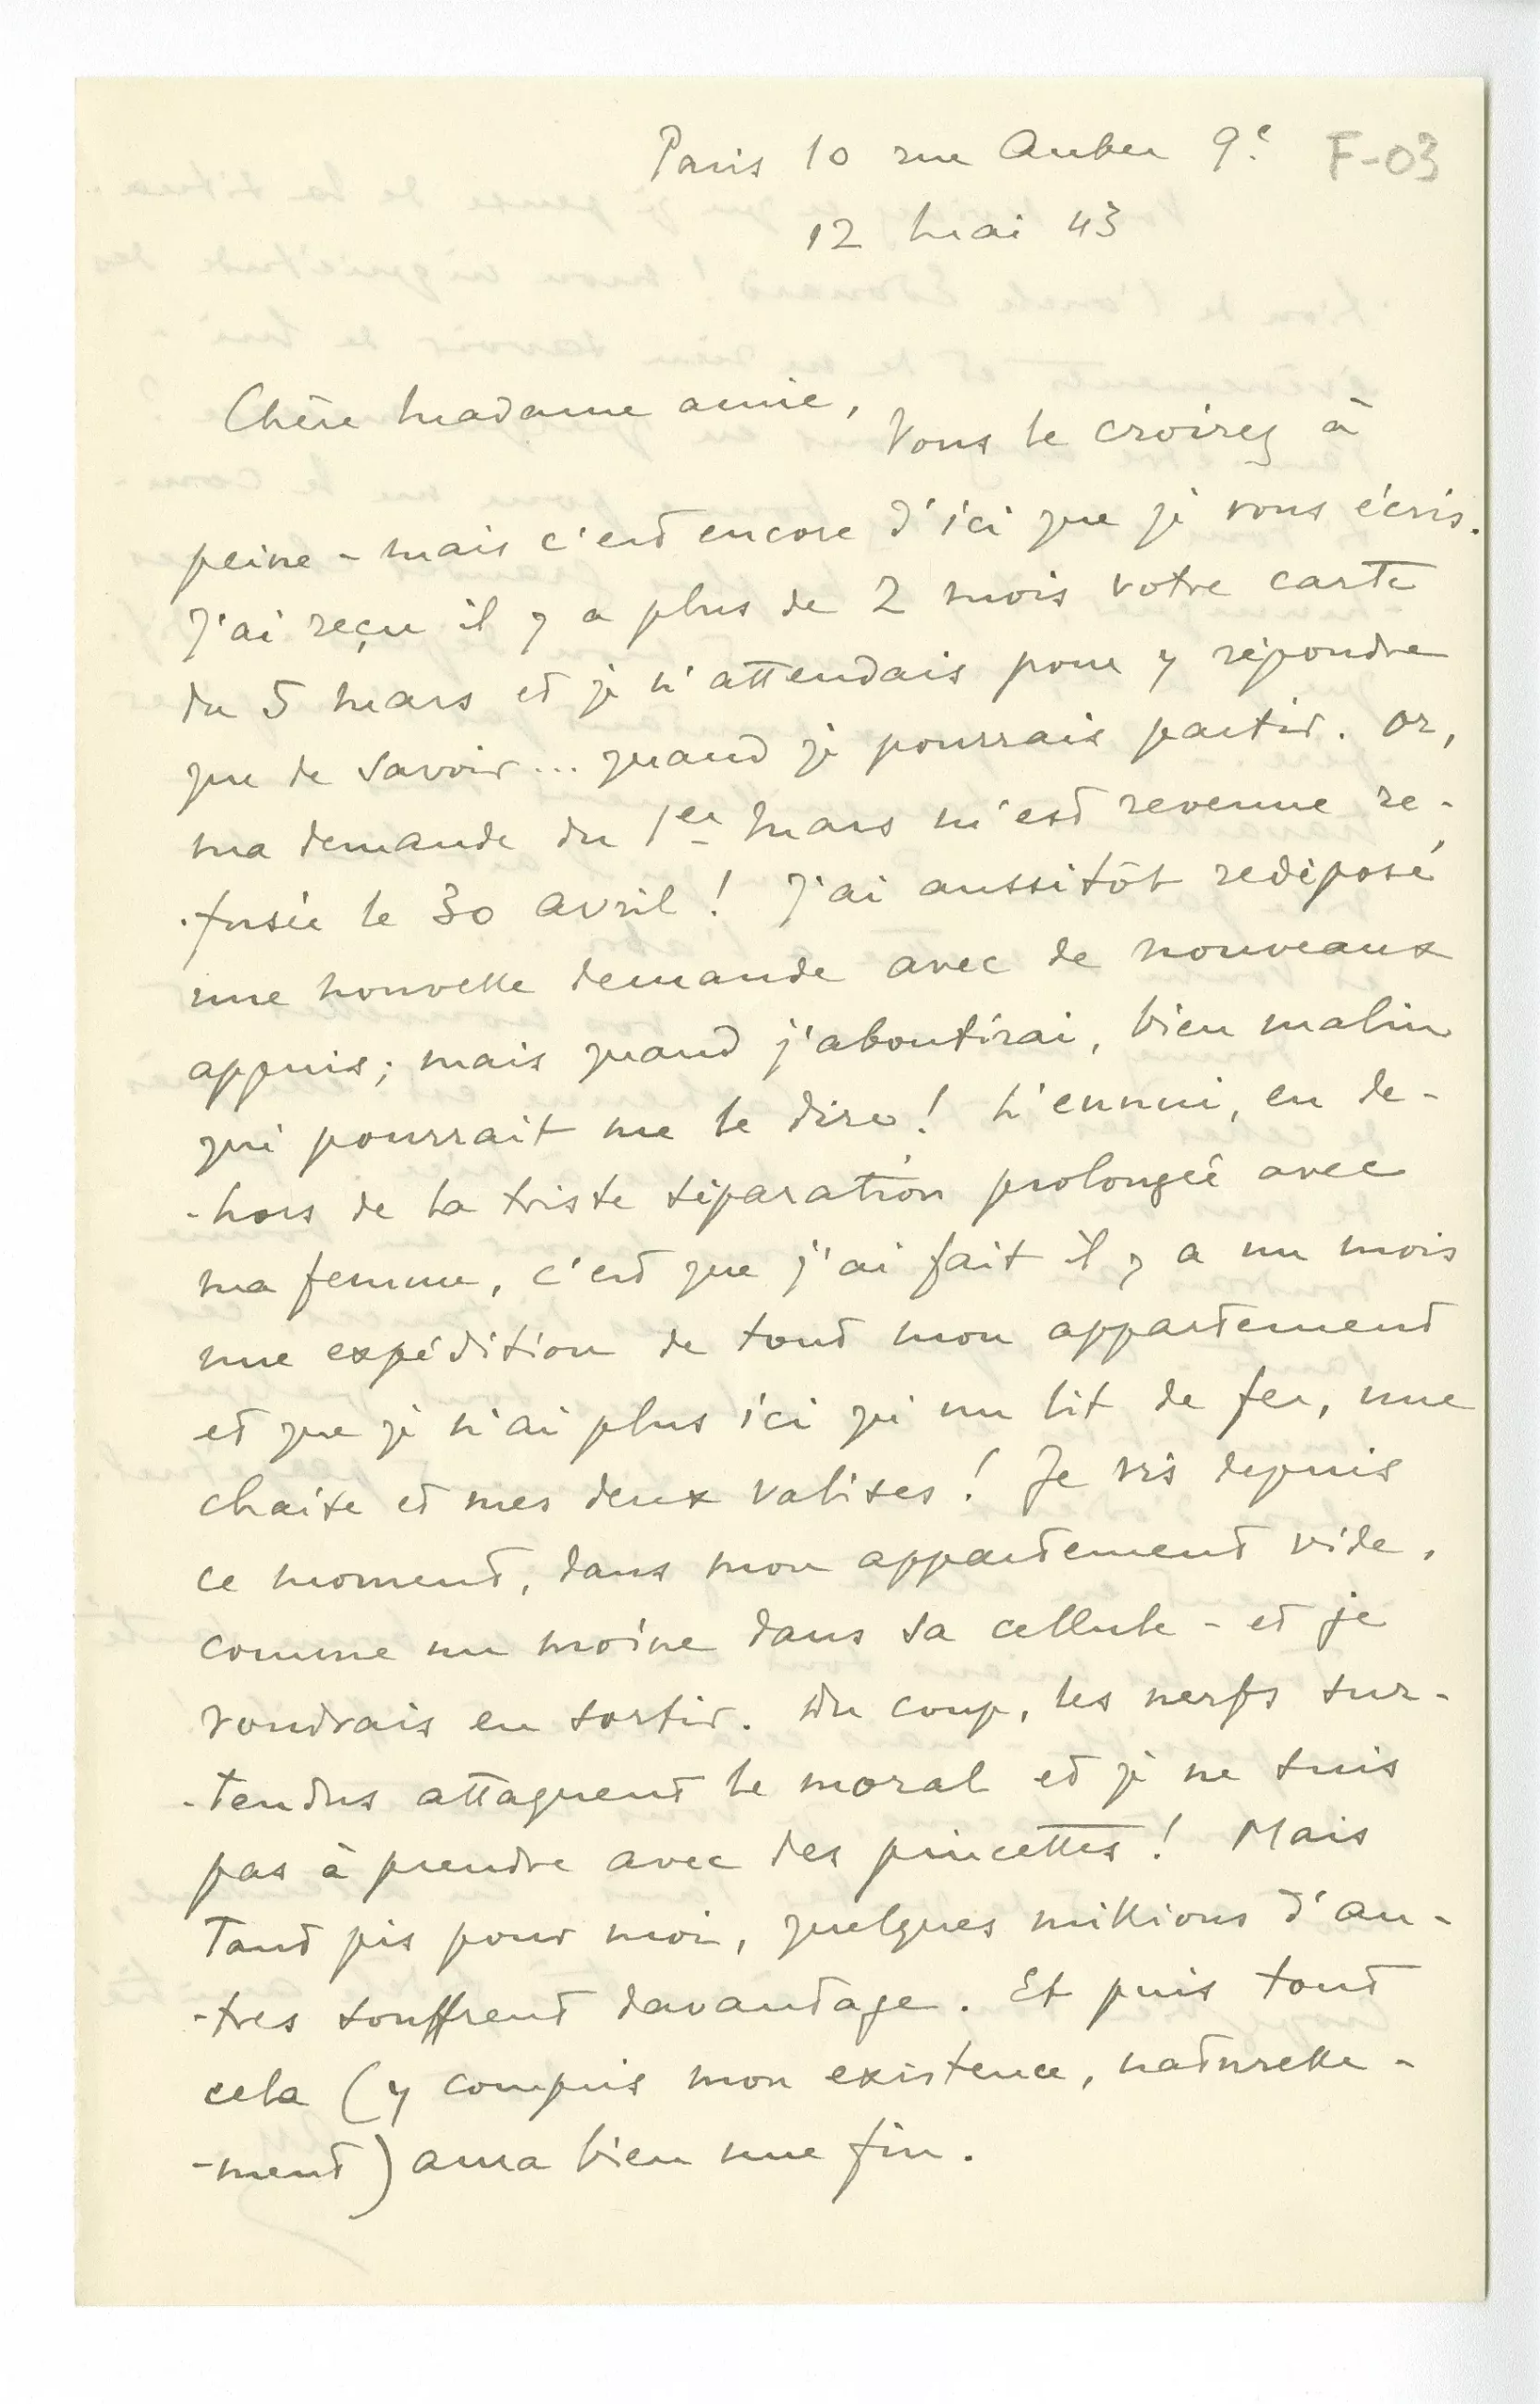 Paris 10 rue Auber 9e F-03
12 mai 43
Chère Madame amie,
Vous le croirez à
peine - mais c'est encore d'ici que je vous écris.
J'ai reçu il y a plus de 2 mois votre carte
du 5 mars et je n'attendais pour y répondre
que de savoir... quand je pourrais partir. Or,
ma demande du 1er mars m'est revenue re-
-fusée le 30 avril ! J'ai aussitôt redéposé
une nouvelle demande avec de nouveaux
appuis ; mais quand j'aboutirai, bien malin
qui pourrait me le dire ! L'ennui, en de-
-hors de la triste séparation prolongée avec
ma femme, c'est que j'ai fait il y a un mois
une expédition de tout mon appartement
et que je n'ai plus ici qu'un lit de fer, une
chaise et mes deux valises ! Je vis depuis
ce moment, dans mon appartement vide,
comme un moine dans sa cellule - et je
voudrais en sortir. Du coup, les nerfs sur-
-tendus attaquent le moral et je ne suis
pas à prendre avec des pincettes ! Mais
Tant pis pour moi, quelques millions d'au-
-tres souffrent davantage. Et puis tout
cela (y compris mon existence, naturelle-
-ment) aura bien une fin.